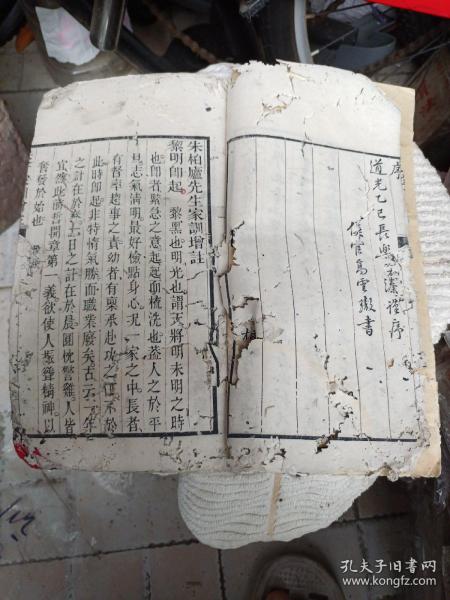 序
道光乙巳長樂
謹序
侯官高
書
朱柏廬先生家訓增註
黎明即起 黎黑也明光也謂天將明未明之時
也即者緊急之意起起而梳洗也蓋人之於平
旦志氣清明最好檢點身心況一家之中長者
有督率趨事之責幼者有稟承
此時即起非特惰氣勝而職業廢矣古云一年
之計在於
一日之計在於晨圓枕警雞人皆
宜然此
開章第一義欲使人振聳精神以
奮發於始也
孔夫子旧书网
www.kongfz.com